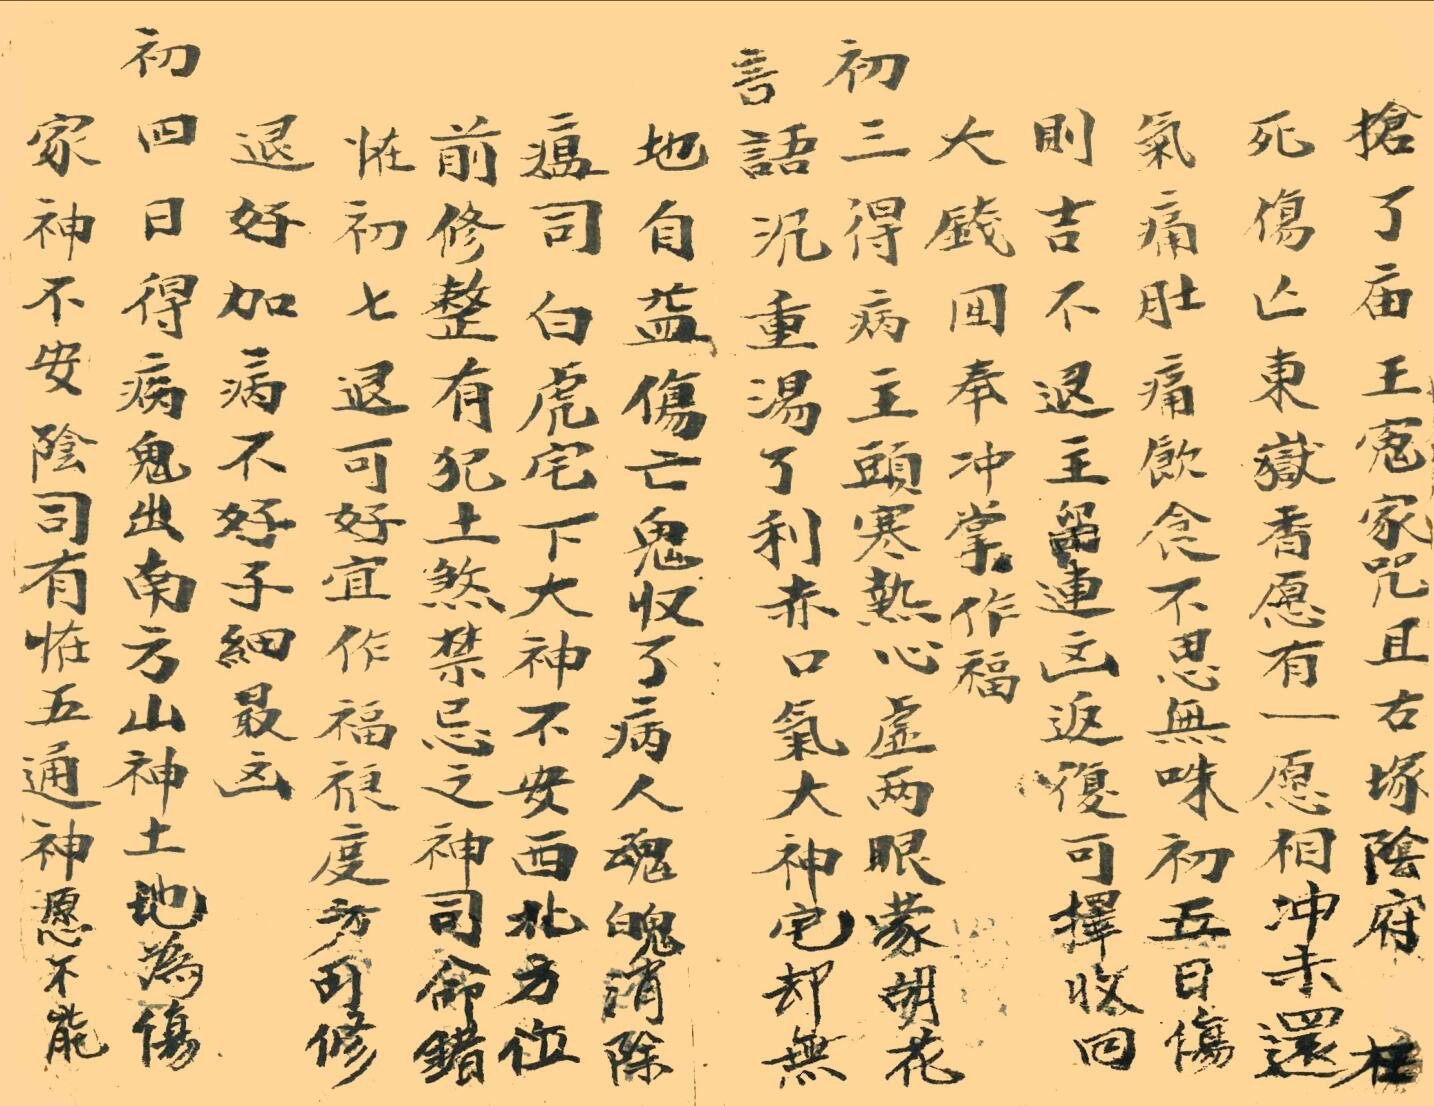 搶了庙王冤家咒且右塚陰府枉
死傷亡東嶽香愿有一愿相冲未還
氣痛肚痛飲食不思無味初五日傷
則吉不退主留連凶返復可擇收回
大戲回奉冲掌作福
初三得病主頭寒熱心虛两眼蒙胡花
言語沉重湯了利赤口氣大神宅却無
地自益傷亡鬼收了病人魂魄消除
瘟司白虎宅下大神不安西北方位
前修整有犯土煞禁忌之神司命錯
怪初七退可好宜作福裉度方可修
退好加病不好子細最凶
初四日得病鬼出南方山神土地為傷
家神不安陰司有怪五通神愿不能